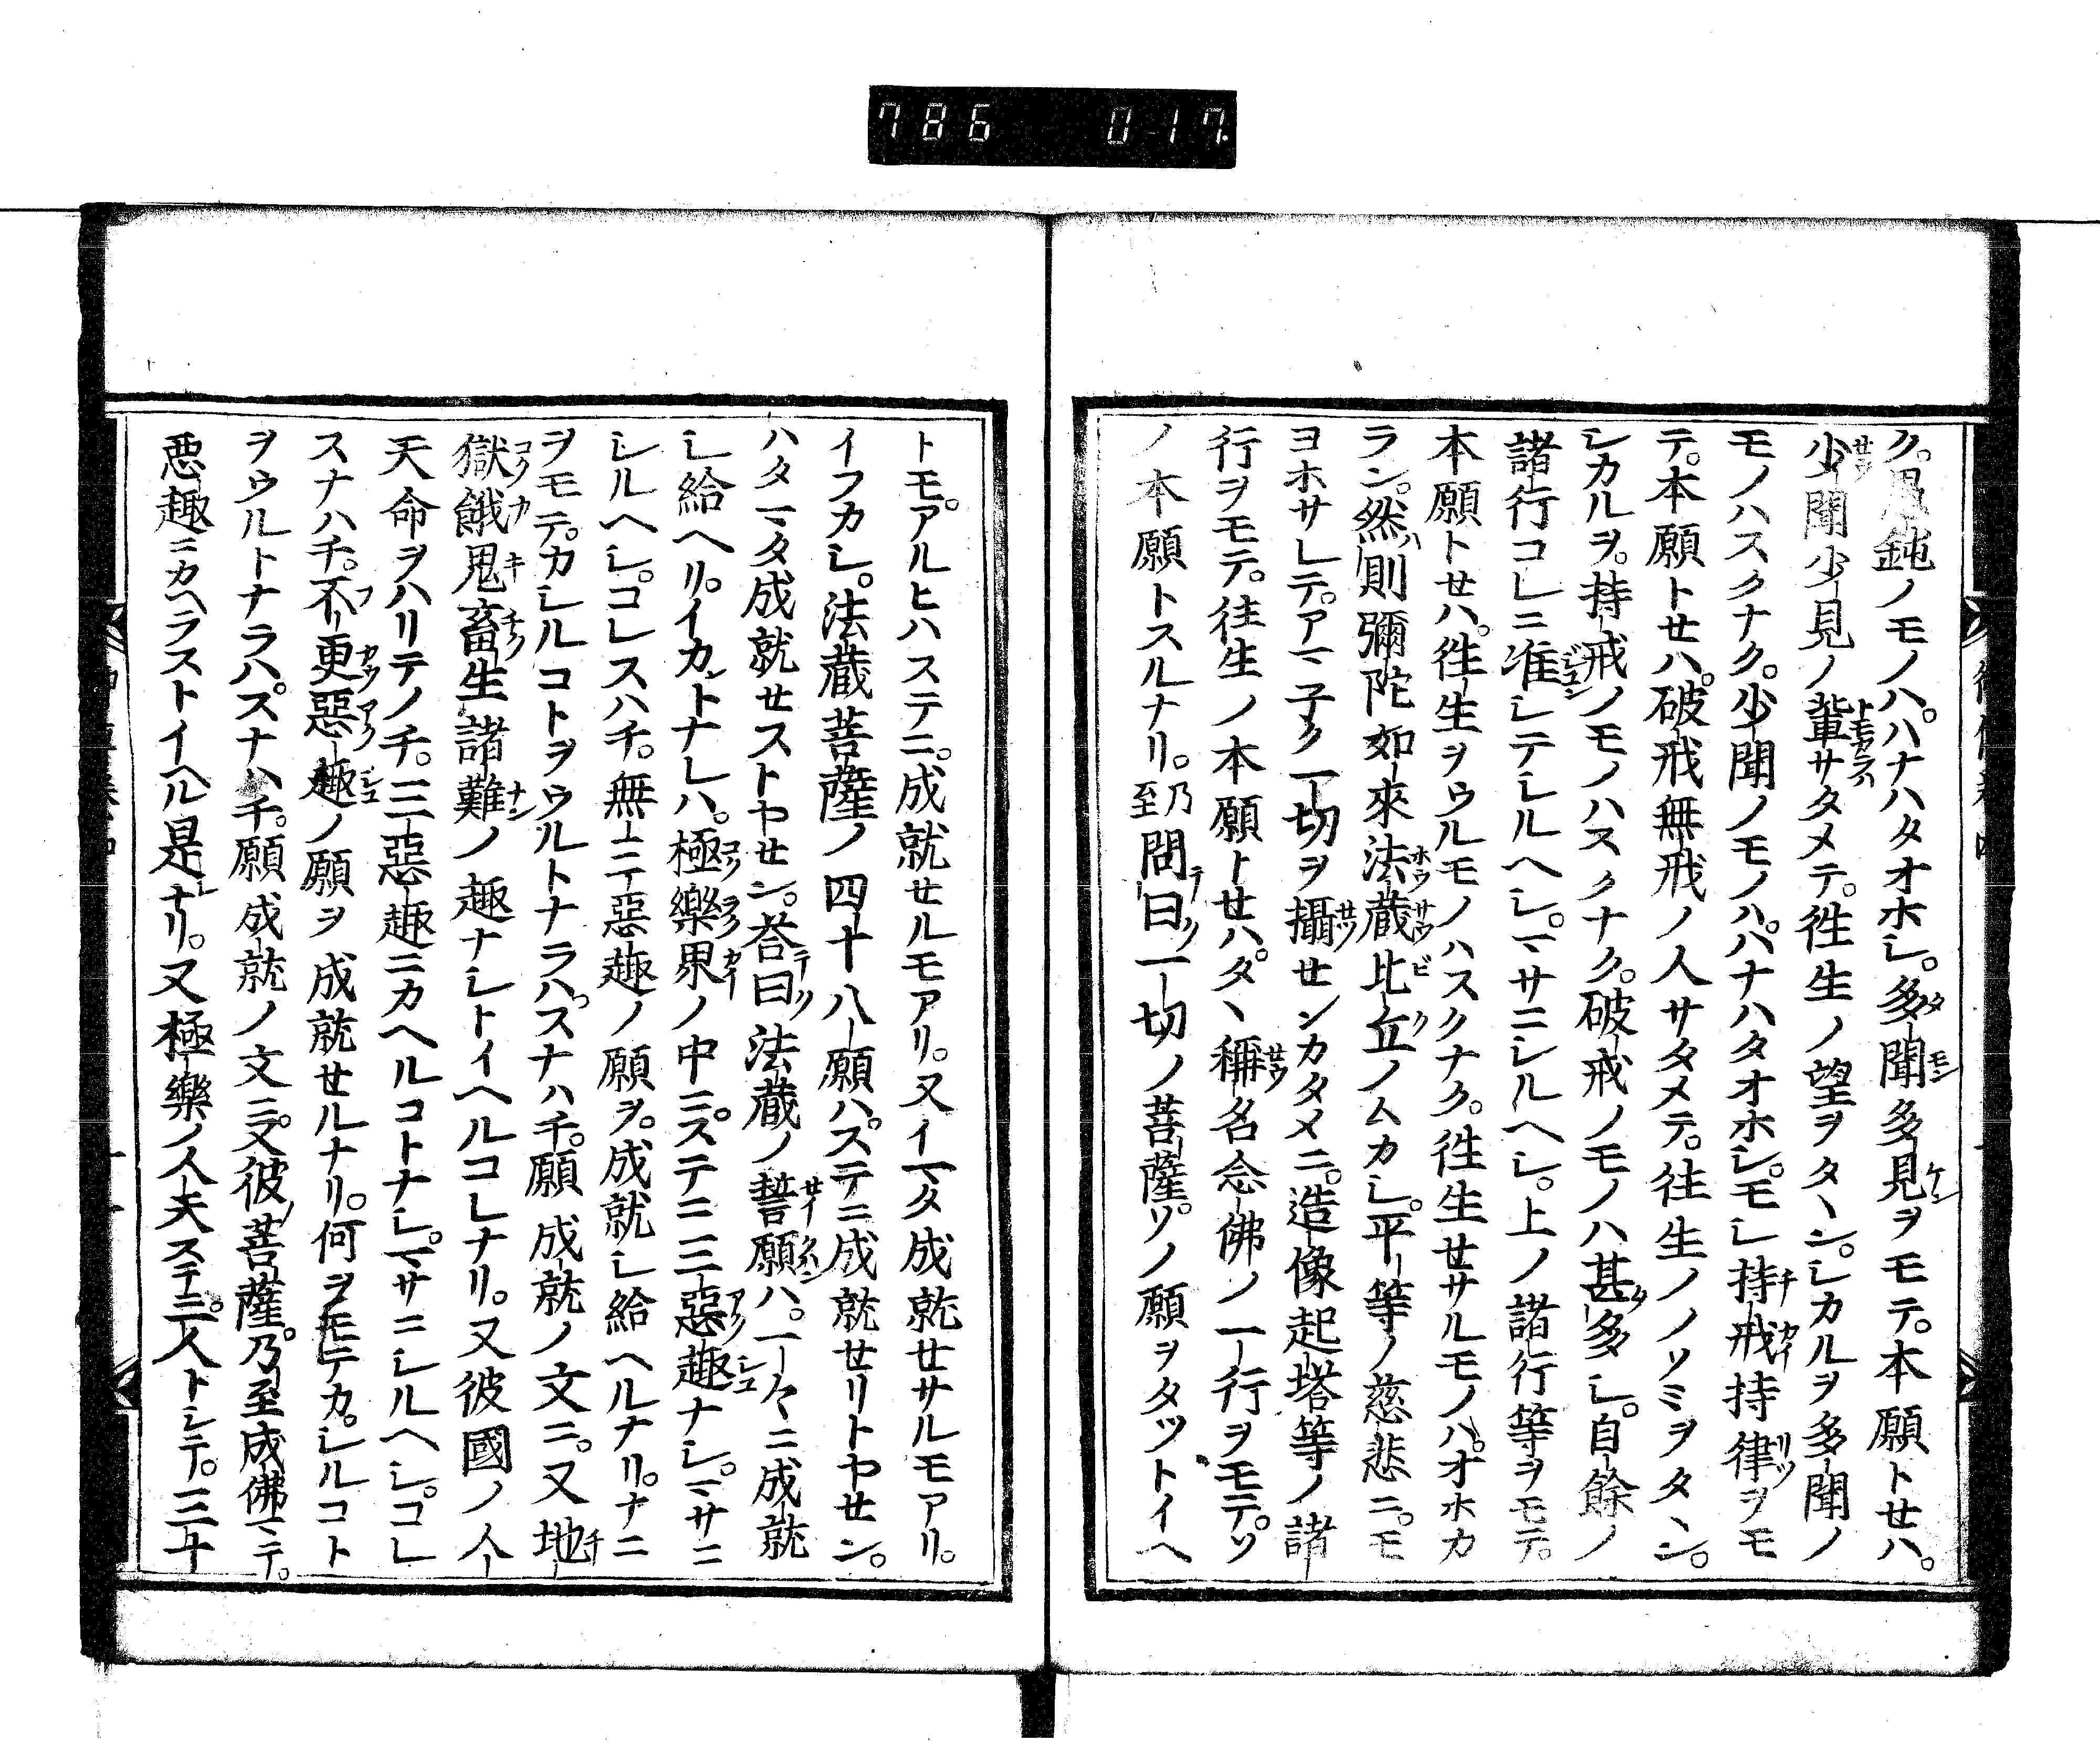 786 017
ク。愚鈍ノモノハ。ハナハタオホシ。多聞多見ヲモテ。本願トセハ。
少聞少見ノ輩サタメテ。徃生ノ望ヲタヽン。シカルヲ多聞ノ
モノハスクナク。少聞ノモノハ。ハナハタオホシ。モシ持戒持律ヲモ
テ。本願トセハ。破戒無戒ノ人サタメテ。徃生ノノソミヲタヽン。
シカルヲ。持戒ノモノハスクナク。破戒ノモノハ甚多シ。自餘ノ
諸行コレニ准シテシルヘシ。マサニシルヘシ。上ノ諸行等ヲモテ。
本願トセハ。徃生ヲウルモノハスクナク。徃生セサルモノハ。オホカ
ラン。然則彌陀如來法蔵比丘ノムカシ。平等ノ慈悲ニ。モ
ヨホサレテ。アマ子ク一切ヲ攝センカタメニ。造像起塔等ノ諸
行ヲモテ。徃生ノ本願トセハ。タヽ稱名念佛ノ一行ヲモテ。ソ
ノ本願トスルナリ。乃至問曰一切ノ菩薩。ソノ願ヲタツトイヘ
トモ。アルヒハステニ。成就セルモアリ。又イマタ成就セサルモアリ。
イフカシ。法蔵菩薩ノ四十八願ハ。ステニ成就セリトヤセン。
ハタマタ成就セストヤセン。荅曰法蔵ノ誓願ハ。一々ニ成就
シ給ヘリ。イカントナレハ。極樂界ノ中ニ。ステニ三惡趣ナシ。マサニ
シルヘシ。コレスハチ。無三惡趣ノ願ヲ。成就シ給ヘルナリ。ナニ
ヲモテ。カシルコトヲウルトナラハ。スナハチ。願成就ノ文ニ。又地
獄餓鬼畜生諸難ノ趣ナシトイヘルコレナリ。又彼國ノ人
天命ヲハリテノチ。三惡趣ニカヘルコトナシ。マサニシルヘシ。コレ
スナハチ。不更惡趣ノ願ヲ成就セルナリ。何ヲモテカ。シルコト
ヲウルトナラハ。スナハチ。願成就ノ文ニ。又彼菩薩。乃至成佛マテ。
悪趣ニカヘラストイヘル是ナリ。又極樂ノ人天ステニ。一人トシテ。三十